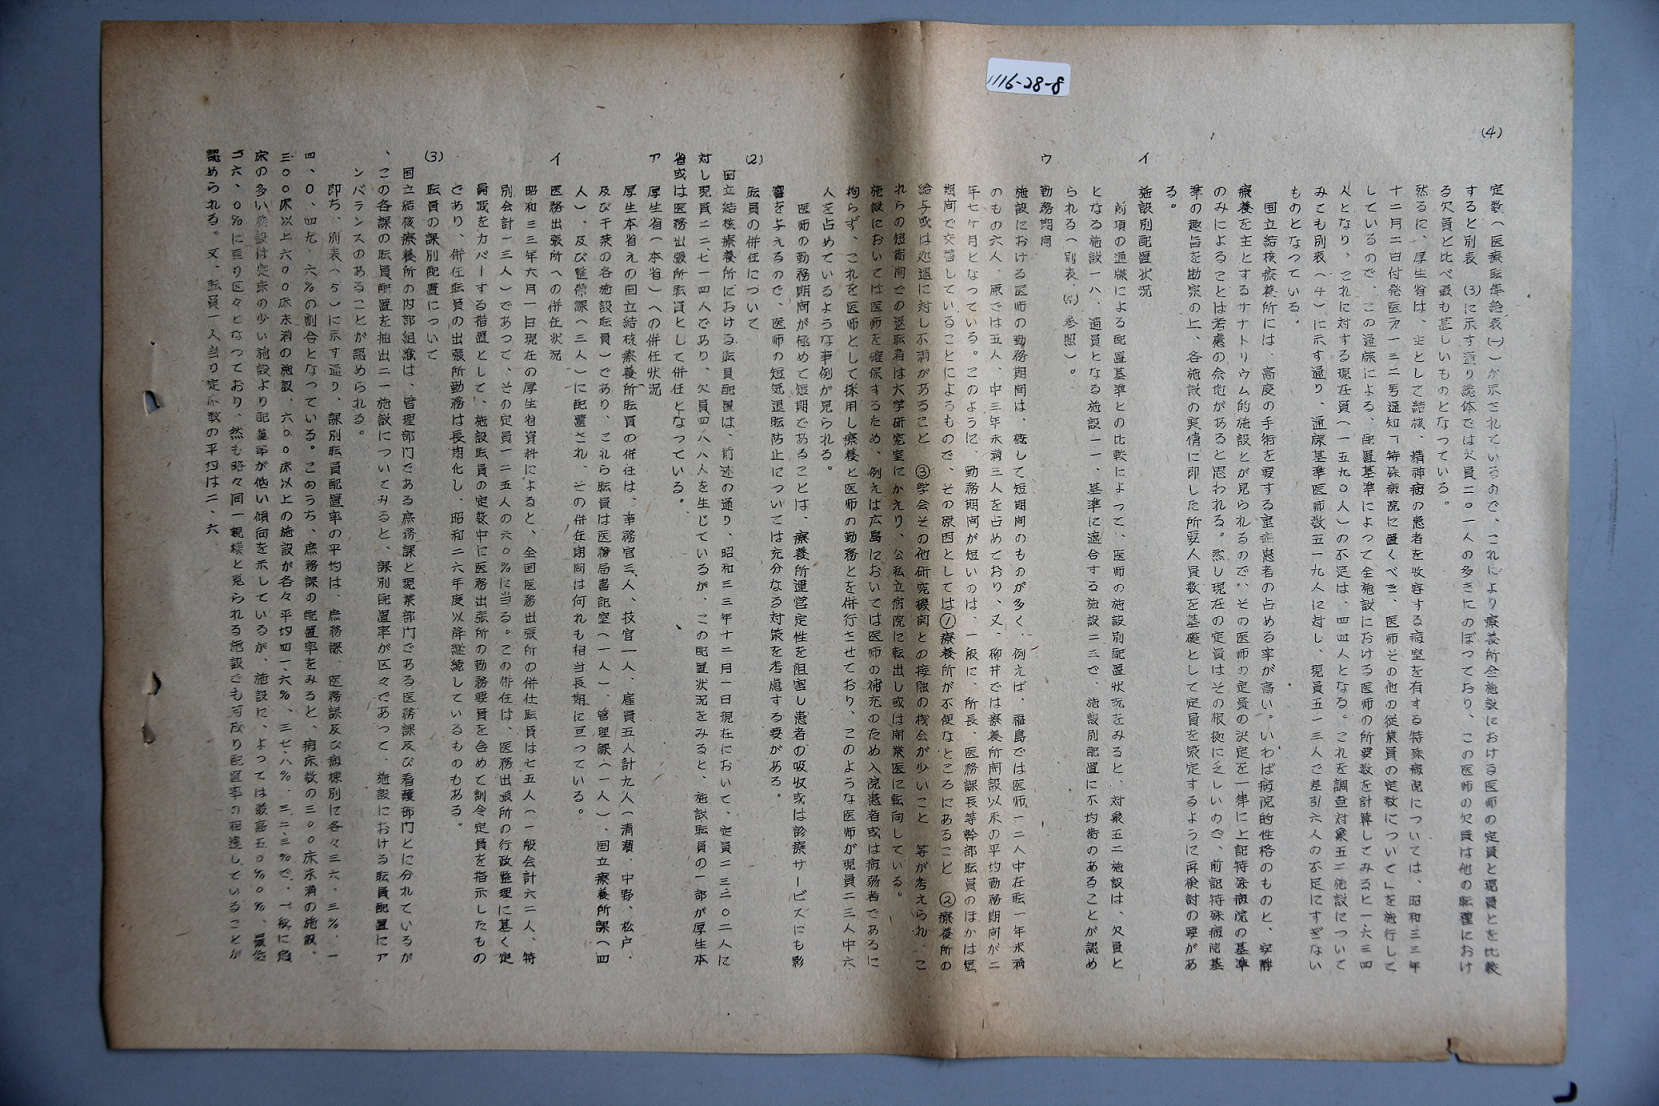 1116-28-8
(4)
定数(医療職俸給表(一)が示されているので、これにより療養所全施設における医師の定員と現員とを比較
すると別表(3)に示す通り総体では欠員二〇一人の多きにのぼっており、この医師の欠員は他の職種におけ
る欠員と比べ最も甚しいものとなっている。
然るに、厚生省は、主として結核、精神病の患者を收容する病室を有する特殊病院については、昭和三三年
十二月二日付発医才一三二号通知「特殊病院に置くべき、医師その他の従業員の定数について」を施行して
しているので、この通牒による、配置基準によって全施設における医師の所要数を計算してみると一、六三四
人となり、これに対する現在員(一五九〇人)の不足は、四四人となる。これを調査対象五二施設について
みても別表(4)に示す通り、通牒基準医師数五一九人に対し、現員五一三人で差引六人の不足にすぎない
ものとなっている。
国立結核療養所には、高度の手術を要する重症患者の占める率が高い。いわば病院的性格のものと、安静
療養を主とするサナトリウム的施設とが見られるので、その医師の定員の決定を一律に上記特殊病院の基準
のみによることは考慮の余地があると思われる。然し現在の定員はその根拠に乏しいので、前記特殊病院基
準の趣旨を勘案の上、各施設の実情に即した所要人員数を基礎として定員を策定するように再検討の要があ
る。
イ 施設別配置状況
前項の通牒による配置基準との比較によって、医師の施設別配置状況をみると、対象五二施設は、欠員と
となる施設一八、過員となる施設一一、基準に適合する施設二三で、施設別配置に不均衡のあることが認め
られる(別表、参照)。
ウ 勤務期間
施設における医師の勤務期間は、概して短期間のものが多く、例えば、福島では医師、一二人中在職一年未満
のもの六人、原では五人、中三年未満三人を占めており、又、柳井では療養所開設以来の平均勤務期間が二
年七ヶ月となっている。このように、勤務期間が短いのは、一般に、所長、医務課長等幹部職員のほかは短
期間で交替していることによるもので、その原因としては①療養所が不便なところにあること ②療養所の
給与或は処遇に対し不満があること ③学会その他研究機関との接触の機会が少いこと 等が考えられ、こ
れらの短期間での退職者は大学研究室にかえり、公私立病院に転出し或は開業医に転向している。
施設においては医師を確保するため、例えば広島においては医師の補充のため入院患者或は病弱者であるに
拘らず、これを医師として採用し療養と医師の勤務とを併行させており、このような医師が現員二三人中六
人を占めているような事例が見られる。
医師の勤務期間が極めて短期であることは、療養所運営定性を阻害し患者の吸收或は診療サービスにも影
響を与えるので、医師の短気退職防止については充分なる対策を考慮する要がある。
(2) 職員の併任について
国立結核療養所における職員配置は、前述の通り、昭和三三年十二月一日現在において、定員二三二〇二人に
対し現員二二、七一四人であり、欠員四八八人を生じているが、この配置状況をみると、施設職員の一部が厚生本
省或は医務出張所職員として併任となっている。
ア 厚生省(本省)への併任状況
厚生本省えの国立結核療養所職員の併任は、事務官三人、技官一人、雇員五人計九人(清瀬、中野、松戸、
及び千葉の各施設職員)であり、これら職員は医務局書記室(一人)、管理課(一人)、国立療養所課(四
人)、及び整備課(三人)に配置され、その併任期間は何れも相当長期に亘っている。
イ 医務出張所への併任状況
昭和三三年六月一日現在の厚生省資料によると、全国医務出張所の併任職員は七五人(一般会計六二人、特
別会計一三人)であって、その定員一二五人の六〇%に当る。この併任は、医務出張所の行政整理に基く定
員減をカバーする措置として、施設職員の定数中に医務出張所の勤務要員を含めて訓令定員を指示したもの
であり、併任職員の出張所勤務は長期化し、昭和二六年度以降継続しているものもある。
(3) 職員の課別配置について
国立結核療養所の内部組織は、管理部門である庶務課と現業部門である医務課及び看護部門とに分れているが
、この各課の職員配置を抽出二一施設についてみると、課別配置率が区々であって、施設における職員配置にア
ンバランスのあることが認められる。
即ち、別表(5)に示す通り、課別職員配置率の平均は、庶務課、医務課及び病棟別に各々三六、三%、一
四、〇、四九、六%の割合となっている。このうち、庶務課の配置率をみると、病床数の三〇〇床未満の施設、
三〇〇床以上六〇〇床未満の施設、六〇〇床以上の施設が各々平均四一、六%、三七、八%、三二、三%で、一般に病
床の多い施設は病床の少い施設より配置率が低い傾向を示しているが、施設に、よっては最高五〇%、最低
二六、〇%に亘り区々となっており、然も略々同一規模と見られる施設でも可成り配置率の相違していることが
認められる。又、職員一人当り定床数の平均は二、六